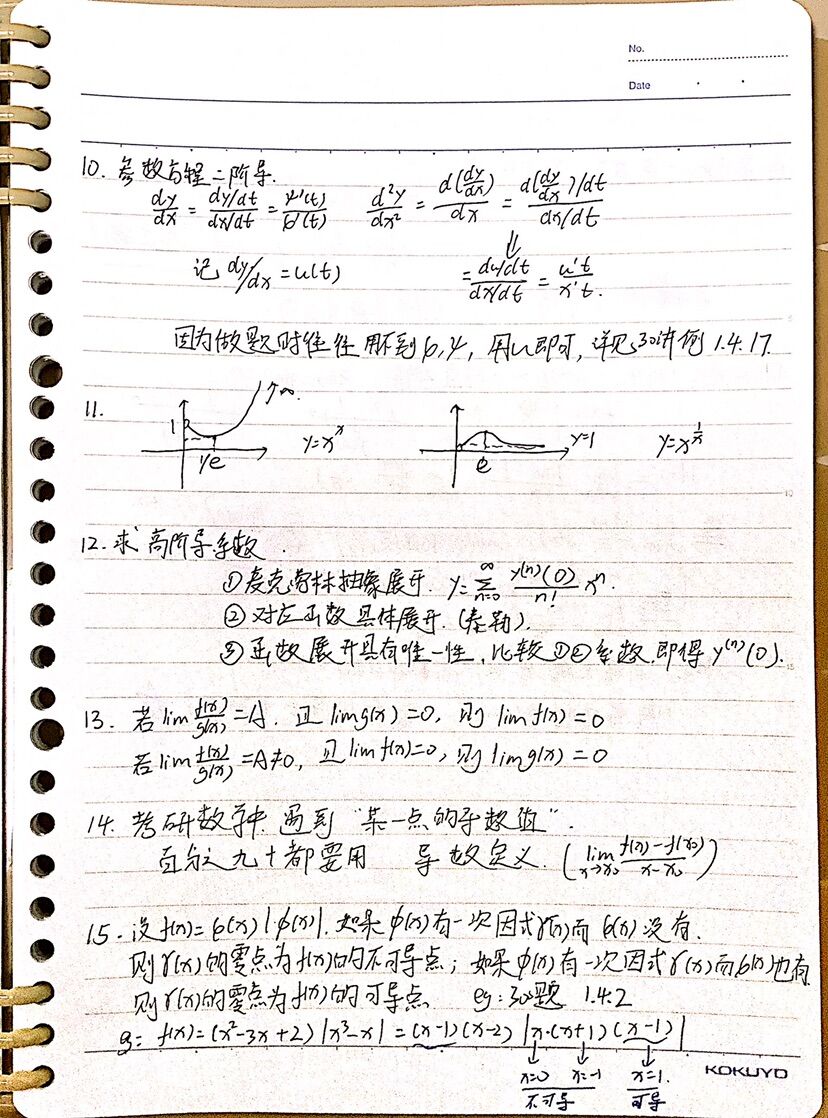 No.
Date
10. 参数方程二阶导.
dy/dx = (dy/dt)/(dx/dt) = ψ'(t)/φ'(t)  d²y/dx² = d(dy/dx)/dx = (d(dy/dx)/dt)/(dx/dt)
⇓
记 dy/dx = u(t)  = (du/dt)/(dx/dt) = u't/x't.
因为做题时往往用不到φ,ψ, 用u即可, 详见30讲例 1.4.17.
11. 1 1/e ↗∞. y=x^x  e y=1 y=x^(1/x)
12. 求高阶导系数.
①麦克劳林抽象展开. y=∑_{n=0}^{∞} (y^(n)(0)/n!) x^n.
② 对左函数具体展开. (泰勒).
③ 函数展开具有唯一性, 比较①②系数, 即得 y^(n)(0).
13. 若 lim f(x)/g(x) = A. 且 lim g(x) = 0, 则 lim f(x) = 0
若 lim f(x)/g(x) = A≠0, 且 lim f(x)=0, 则 lim g(x) = 0
14. 考研数学中. 遇到 "某一点的导数值".
百分之九十都要用 导数定义. (lim_{x→x₀} (f(x)-f(x₀))/(x-x₀))
15. 设 f(x) = φ(x)|ϕ(x)|. 如果 ϕ(x) 有一次因式 γ(x) 而 φ(x) 没有.
则 γ(x) 的零点为 f(x) 的不可导点; 如果 ϕ(x) 有一次因式 γ(x) 而 φ(x) 也有
则 γ(x) 的零点为 f(x) 的可导点. eg: 30题 1.4.2
f(x) = (x²-3x+2)|x³-x| = (x-1)(x-2)|x·(x+1)(x-1)|
x=0 x=-1 x=1.
不可导 可导
KOKUYO